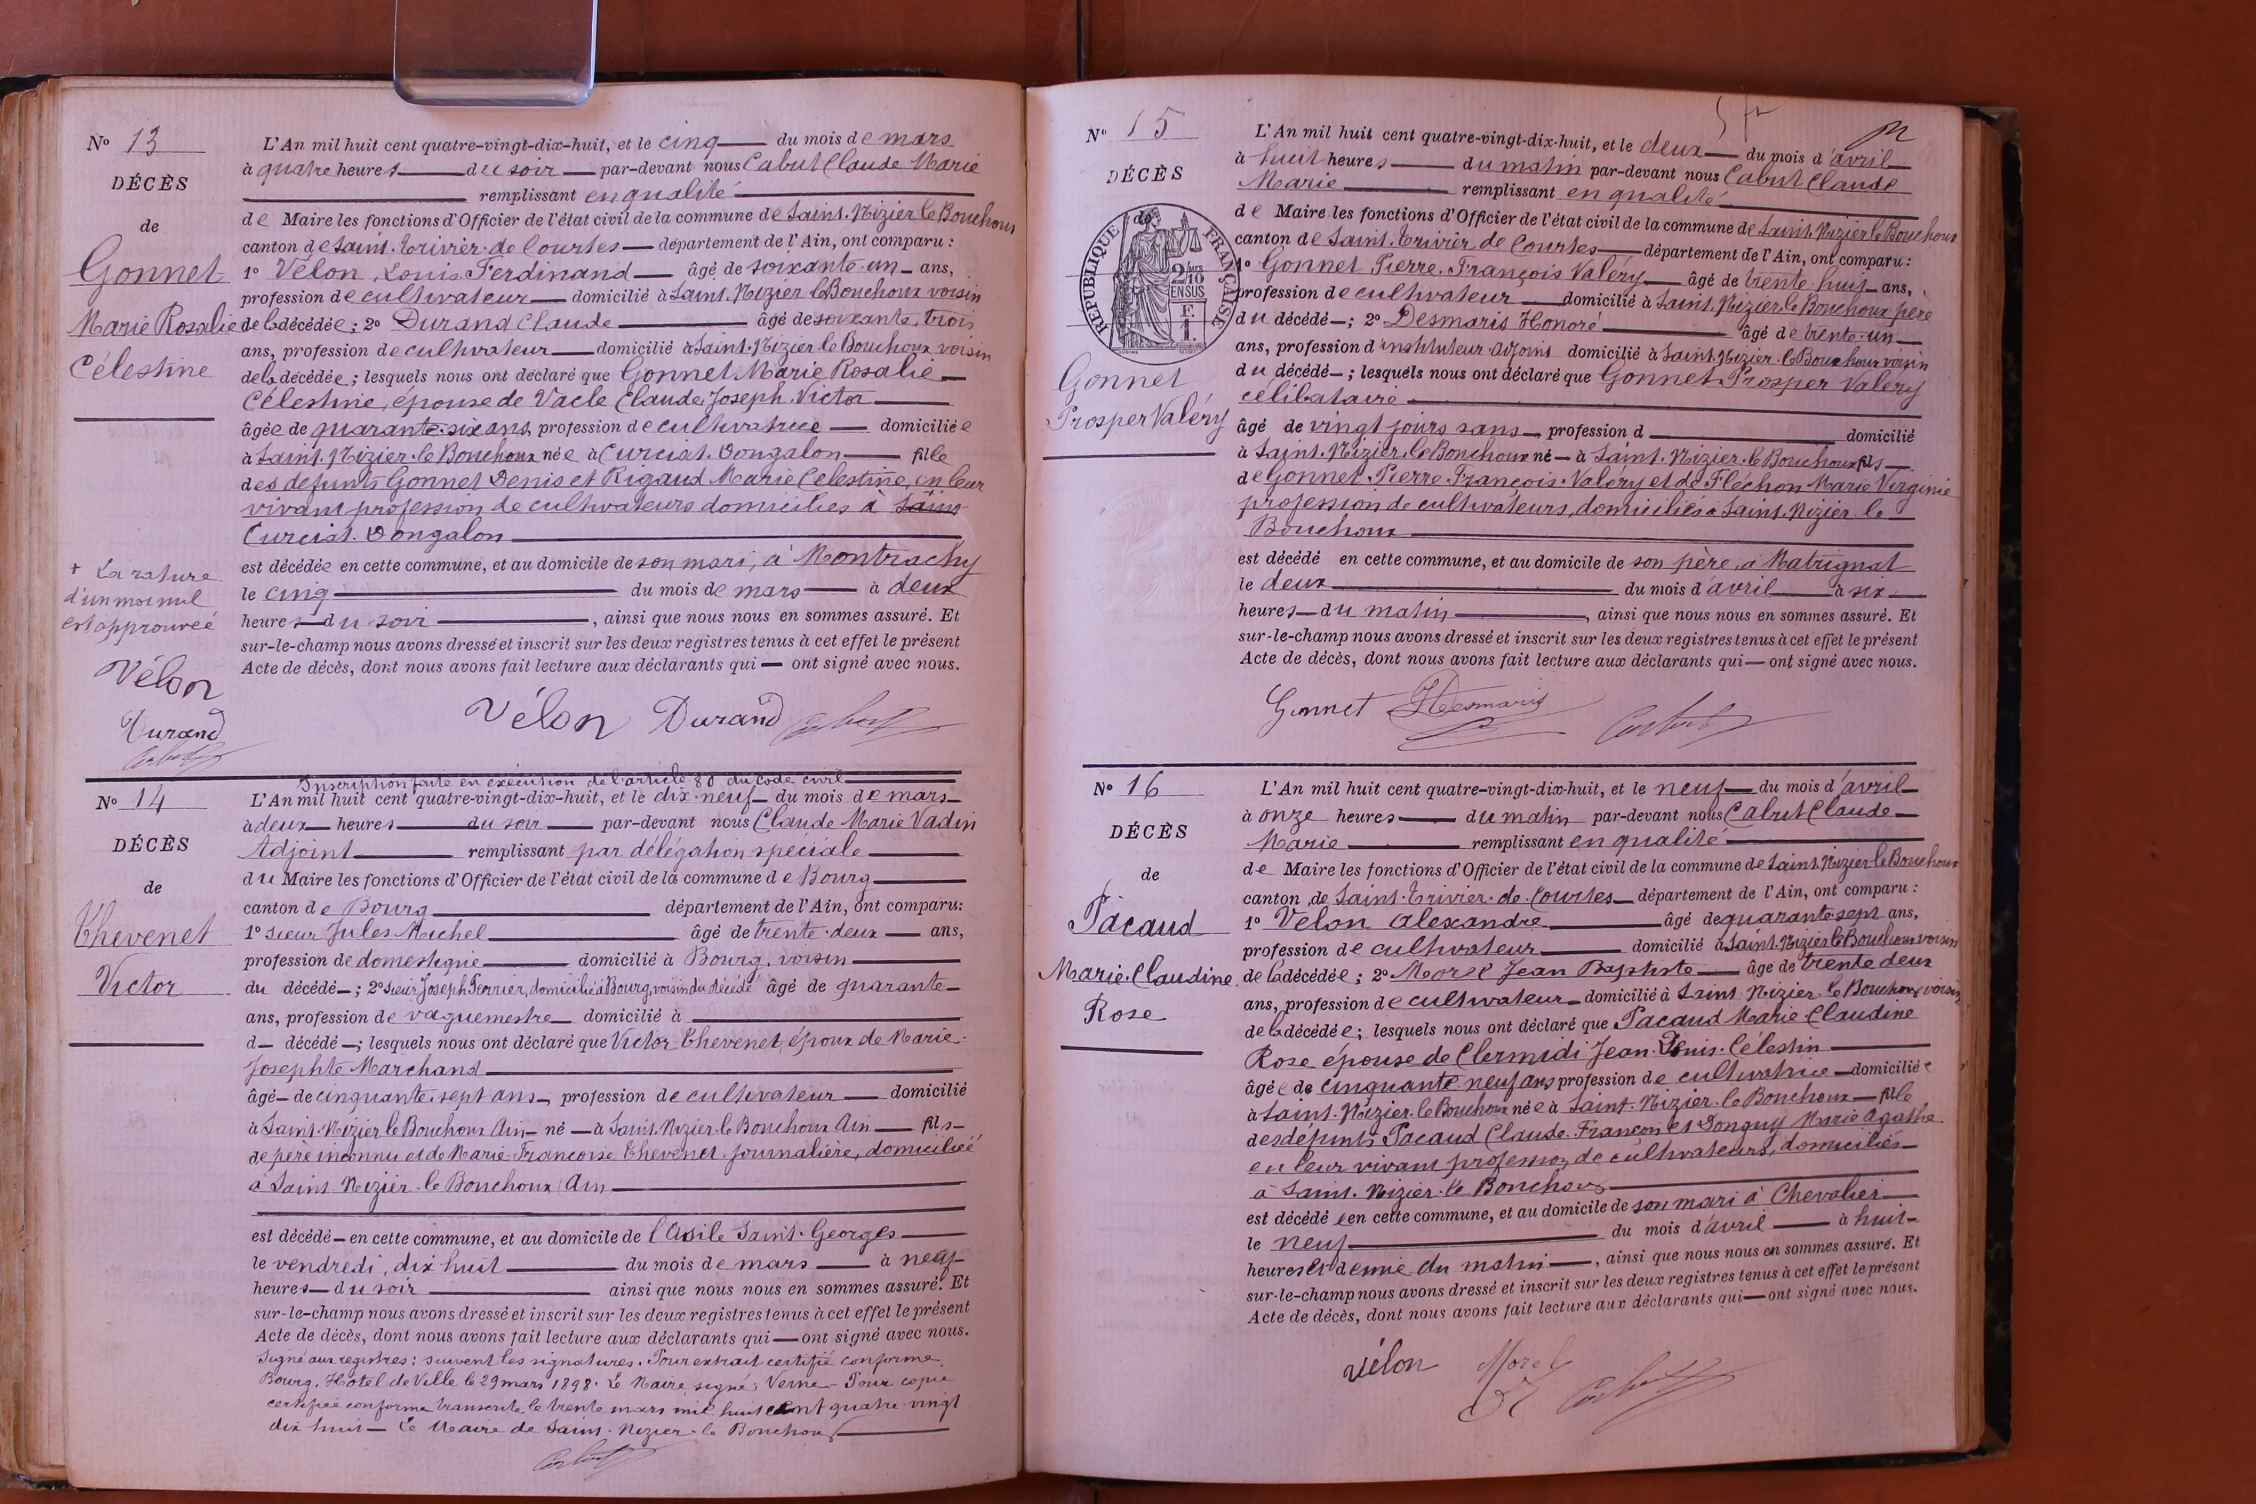 N° 13
DÉCÈS
de
Gonnet
Marie Rosalie
Célestine
+ La rature
d'un mot nul
est approuvée
Vélon
Durand
L'An mil huit cent quatre-vingt-dix-huit, et le cinq du mois de mars
à quatre heures du soir par-devant nous Cabut Claude Marie
remplissant en qualité
de Maire les fonctions d'Officier de l'état civil de la commune de Saint-Nizier le Bouchoux
canton de Saint-Trivier-de Courtes département de l'Ain, ont comparu :
1° Vélon, Louis Ferdinand âgé de soixante-un ans,
profession de cultivateur domicilié à Saint-Nizier le Bouchoux voisin
de la décédée ; 2° Durand Claude âgé de soixante-trois
ans, profession de cultivateur domicilié à Saint-Nizier le Bouchoux voisin
de la décédée ; lesquels nous ont déclaré que Gonnet Marie Rosalie
Célestine, épouse de Vacle Claude Joseph Victor
âgée de quarante-six ans, profession de cultivatrice domiciliée
à Saint-Nizier-le Bouchoux née à Curciat-Dongalon fille
des défunts Gonnet Denis et Rigaud Marie Célestine, en leur
vivant profession de cultivateurs domiciliés à Saint
Curciat-Dongalon
est décédée en cette commune, et au domicile de son mari, à Montrachy
le cinq du mois de mars à deux
heures du soir, ainsi que nous nous en sommes assuré. Et
sur-le-champ nous avons dressé et inscrit sur les deux registres tenus à cet effet le présent
Acte de décès, dont nous avons fait lecture aux déclarants qui — ont signé avec nous.
Vélon Durand Cabut
N° 14
DÉCÈS
de
Thevenet
Victor
Inscription faite en exécution de l'article 80 du Code civil
L'An mil huit cent quatre-vingt-dix-huit, et le dix-neuf du mois de mars
à deux heures du soir par-devant nous Claude Marie Vadin
Adjoint remplissant par délégation spéciale
du Maire les fonctions d'Officier de l'état civil de la commune de Bourg
canton de Bourg département de l'Ain, ont comparu:
1° sieur Jules Michel âgé de trente-deux ans,
profession de domestique domicilié à Bourg, voisin
du décédé ; 2° sieur Joseph Perrier, domicilié à Bourg, voisin du décédé âgé de quarante
ans, profession de vaguemestre domicilié à
d— décédé —; lesquels nous ont déclaré que Victor Thevenet, époux de Marie
Josephte Marchand
âgé de cinquante-sept ans, profession de cultivateur domicilié
à Saint-Nizier le Bouchoux Ain né à Saint-Nizier-le Bouchoux Ain fils
de père inconnu et de Marie-Françoise Thevenet journalière, domiciliée
à Saint Nizier-le Bouchoux (Ain
est décédé en cette commune, et au domicile de l'Asile Saint-Georges
le vendredi, dix huit du mois de mars à neuf
heures du soir ainsi que nous nous en sommes assuré. Et
sur-le-champ nous avons dressé et inscrit sur les deux registres tenus à cet effet le présent
Acte de décès, dont nous avons fait lecture aux déclarants qui — ont signé avec nous.
Signé aux registres : suivent les signatures. Pour extrait certifié conforme.
Bourg, Hôtel de Ville le 29 mars 1898. Le Maire, signé, Verne. Pour copie
certifiée conforme transcrite le trente mars mil huit cent quatre-vingt
dix huit — Le Maire de Saint-Nizier-le Bouchoux
Cabut
5 fr
N° 15
DÉCÈS
de
RÉPUBLIQUE FRANÇAISE
2/10 EN SUS
F. 1
Gonnet
Prosper Valéry
L'An mil huit cent quatre-vingt-dix-huit, et le deux du mois d'avril
à huit heures du matin par-devant nous Cabut Claude
Marie remplissant en qualité
de Maire les fonctions d'Officier de l'état civil de la commune de Saint-Nizier le Bouchoux
canton de Saint-Trivier de Courtes département de l'Ain, ont comparu :
1° Gonnet Pierre-François Valéry âgé de trente-huit ans,
profession de cultivateur domicilié à Saint-Nizier-le Bouchoux père
du décédé ; 2° Desmaris Honoré âgé de trente-un
ans, profession d'instituteur-adjoint domicilié à Saint-Nizier-le Bouchoux voisin
du décédé ; lesquels nous ont déclaré que Gonnet Prosper Valéry
célibataire
âgé de vingt jours sans profession d domicilié
à Saint-Nizier-le Bouchoux né à Saint-Nizier-le Bouchoux fils
de Gonnet Pierre François Valéry et de Fléchon Marie Virginie
profession de cultivateurs, domiciliés à Saint-Nizier-le
Bouchoux
est décédé en cette commune, et au domicile de son père, à Matrignat
le deux du mois d'avril à six
heures du matin, ainsi que nous nous en sommes assuré. Et
sur-le-champ nous avons dressé et inscrit sur les deux registres tenus à cet effet le présent
Acte de décès, dont nous avons fait lecture aux déclarants qui — ont signé avec nous.
Gonnet HDesmaris Cabut
N° 16
DÉCÈS
de
Pacaud
Marie-Claudine
Rose
L'An mil huit cent quatre-vingt-dix-huit, et le neuf du mois d'avril
à onze heures du matin par-devant nous Cabut Claude
Marie remplissant en qualité
de Maire les fonctions d'Officier de l'état civil de la commune de Saint-Nizier le Bouchoux
canton de Saint-Trivier-de-Courtes département de l'Ain, ont comparu :
1° Vélon Alexandre âgé de quarante-sept ans,
profession de cultivateur domicilié à Saint-Nizier le Bouchoux voisin
de la décédée ; 2° Morel Jean Baptiste âgé de trente deux
ans, profession de cultivateur domicilié à Saint-Nizier-le Bouchoux voisin
de la décédée ; lesquels nous ont déclaré que Pacaud Marie Claudine
Rose, épouse de Clermidi Jean-Denis-Célestin
âgée de cinquante neuf ans profession de cultivatrice domiciliée
à Saint-Nizier-le Bouchoux née à Saint-Nizier-le Bouchoux fille
des défunts Pacaud Claude-François et Donguy Marie Agathe
en leur vivant profession de cultivateurs, domiciliés
à Saint-Nizier-le Bouchoux
est décédée en cette commune, et au domicile de son mari à Chevalier
le neuf du mois d'avril à huit
heures et demie du matin, ainsi que nous nous en sommes assuré. Et
sur-le-champ nous avons dressé et inscrit sur les deux registres tenus à cet effet le présent
Acte de décès, dont nous avons fait lecture aux déclarants qui — ont signé avec nous.
Vélon Morel Cabut